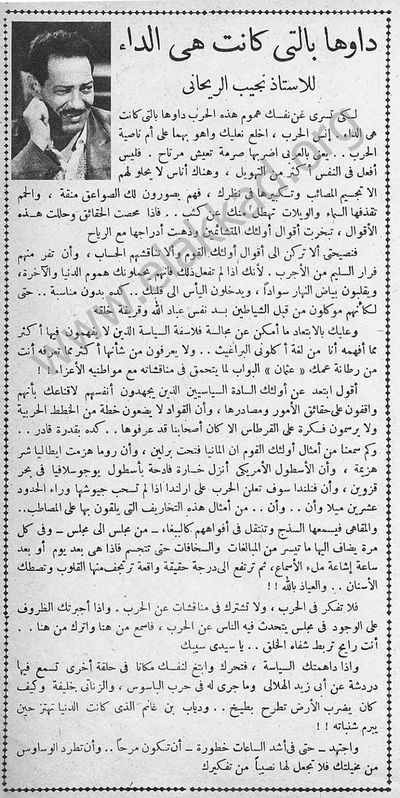 داوها بالتى كانت هى الداء
للاستاذ نجيب الريحانى
لكى تسرى عن نفسك هموم هذه الحرب داوها بالتى كانت
هى الداء. إنس الحرب، اخلع نعليك واهو بهما على أم ناصية
الحرب.. يعنى بالعربى اضربها صرمة تعيش مرتاح. فليس
أفعل فى النفس أكثر من التهويل، وهناك أناس لا يحلو لهم
الا تجسيم المصائب وتكبيرها فى نظرك، فهم يصورون لك الصواعق منقة، والحمم
تقذفها السماء والويلات تهطل منك عن كثب.. فاذا محصت الحقائق وحللت هذه
الأقوال، تبخرت أقوال أولئك المتشائمين وذهبت أدراجها مع الرياح
فنصيحتى ألا تركن الى أقوال أولئك القوم والا تناقشهم الحساب، وأن تفر منهم
فرار السليم من الأجرب. لأنك اذا لم تفعل ذلك فانهم يحملونك هموم الدنيا والآخرة،
ويقلبون بياض النهار سواداً، ويدخلون اليأس الى قلبك.. كده بدون مناسبة.. حتى
لكأنهم موكلون من قبل الشياطين بسد نفس عباد الله وقريفة خلقه
وعليك بالابتعاد ما أمكن عن مجالسة فلاسفة السياسة الذين لا يفهمون فيها أكثر
مما أفهمه أنا من لغة أكلونى البراغيث.. ولا يعرفون من شأنها أكثر مما تعرفه أنت
من رطانة عمك «عثمان» البواب لما يتحمق فى مناقشاته مع مواطنيه الأعزاء!!
أقول ابتعد عن أولئك السادة السياسيين الذين يجهدون أنفسهم لاقناعك بأنهم
واقفون على حقائق الأمور ومصادرها، وأن القواد لا يضعون خطة من الخطط الحربية
ولا يرسمون فكرة على القرطاس الا كان أصحابنا قد عرفوها.. كده بقدرة قادر..
وكم سمعنا من أمثال أولئك القوم ان المانيا فتحت برلين، وأن روما هزمت ايطاليا شر
هزيمة، وأن الأسطول الأمريكى أنزل خسارة فادحة بأسطول يوجوسلافيا فى بحر
قزوين، وأن فنلندا سوف تعلن الحرب على ارلندا اذا لم تسحب جيوشها وراء الحدود
عشرين ميلا وأن.. وأن.. من أمثال هذه التخاريف التى يلقون بها على المصاطب..
والمقاهى فيسمعها السذج وتنتقل فى أفواههم كالببغاء.. من مجلس الى مجلس ـ وفى كل
مرة يضاف اليها ما تيسر من المبالغات والسخافات حتى تتجسم فاذا هى بعد يوم أو بعد
ساعة إشاعة ملء الأسماع، ثم ترتفع الى درجة حقيقة واقعة ترتجف منها القلوب وتصطك
الأسنان.. والعياذ بالله!!
فلا تفكر فى الحرب، ولا تشترك فى مناقشات عن الحرب. واذا أجبرتك الظروف
على الوجود فى مجلس يتحدث فيه الناس عن الحرب، فاسمع من هنا واترك من هنا..
أنت رايح تربط شفاه الخلق.. يا سيدى سيبك
واذا داهمتك السياسة، فتحرك وابتغ لنفسك مكانا فى حلقة أخرى تسمع فيها
دردشة عن أبى زيد الهلالى وما جرى له فى حرب الباسوس، والزناتى خليفة وكيف
كان يضرب الأرض تطرح بطيخ.. ودياب بن غانم الذى كانت الدنيا تهتز حين
يبرم شنباته!!
واجتهد ـ حتى فى أشد الساعات خطورة ـ أن تكون مرحاً.. وأن تطرد الوساوس
من مخيلتك فلا تجعل لها نصيباً من تفكيرك
www.alakkad.org